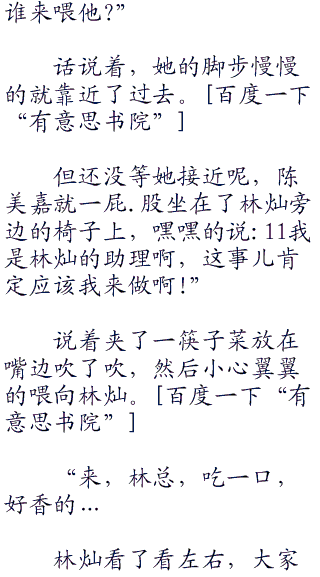 谁来喂他?”
话说着，她的脚步慢慢
的就靠近了过去。[百度一下
“有意思书院”]
但还没等她接近呢，陈
美嘉就一屁.股坐在了林灿旁
边的椅子上，嘿嘿的说:11我
是林灿的助理啊，这事儿肯
定应该我来做啊!”
说着夹了一筷子菜放在
嘴边吹了吹，然后小心翼翼
的喂向林灿。[百度一下“有
意思书院”]
“来，林总，吃一口，
好香的...
林灿看了看左右，大家